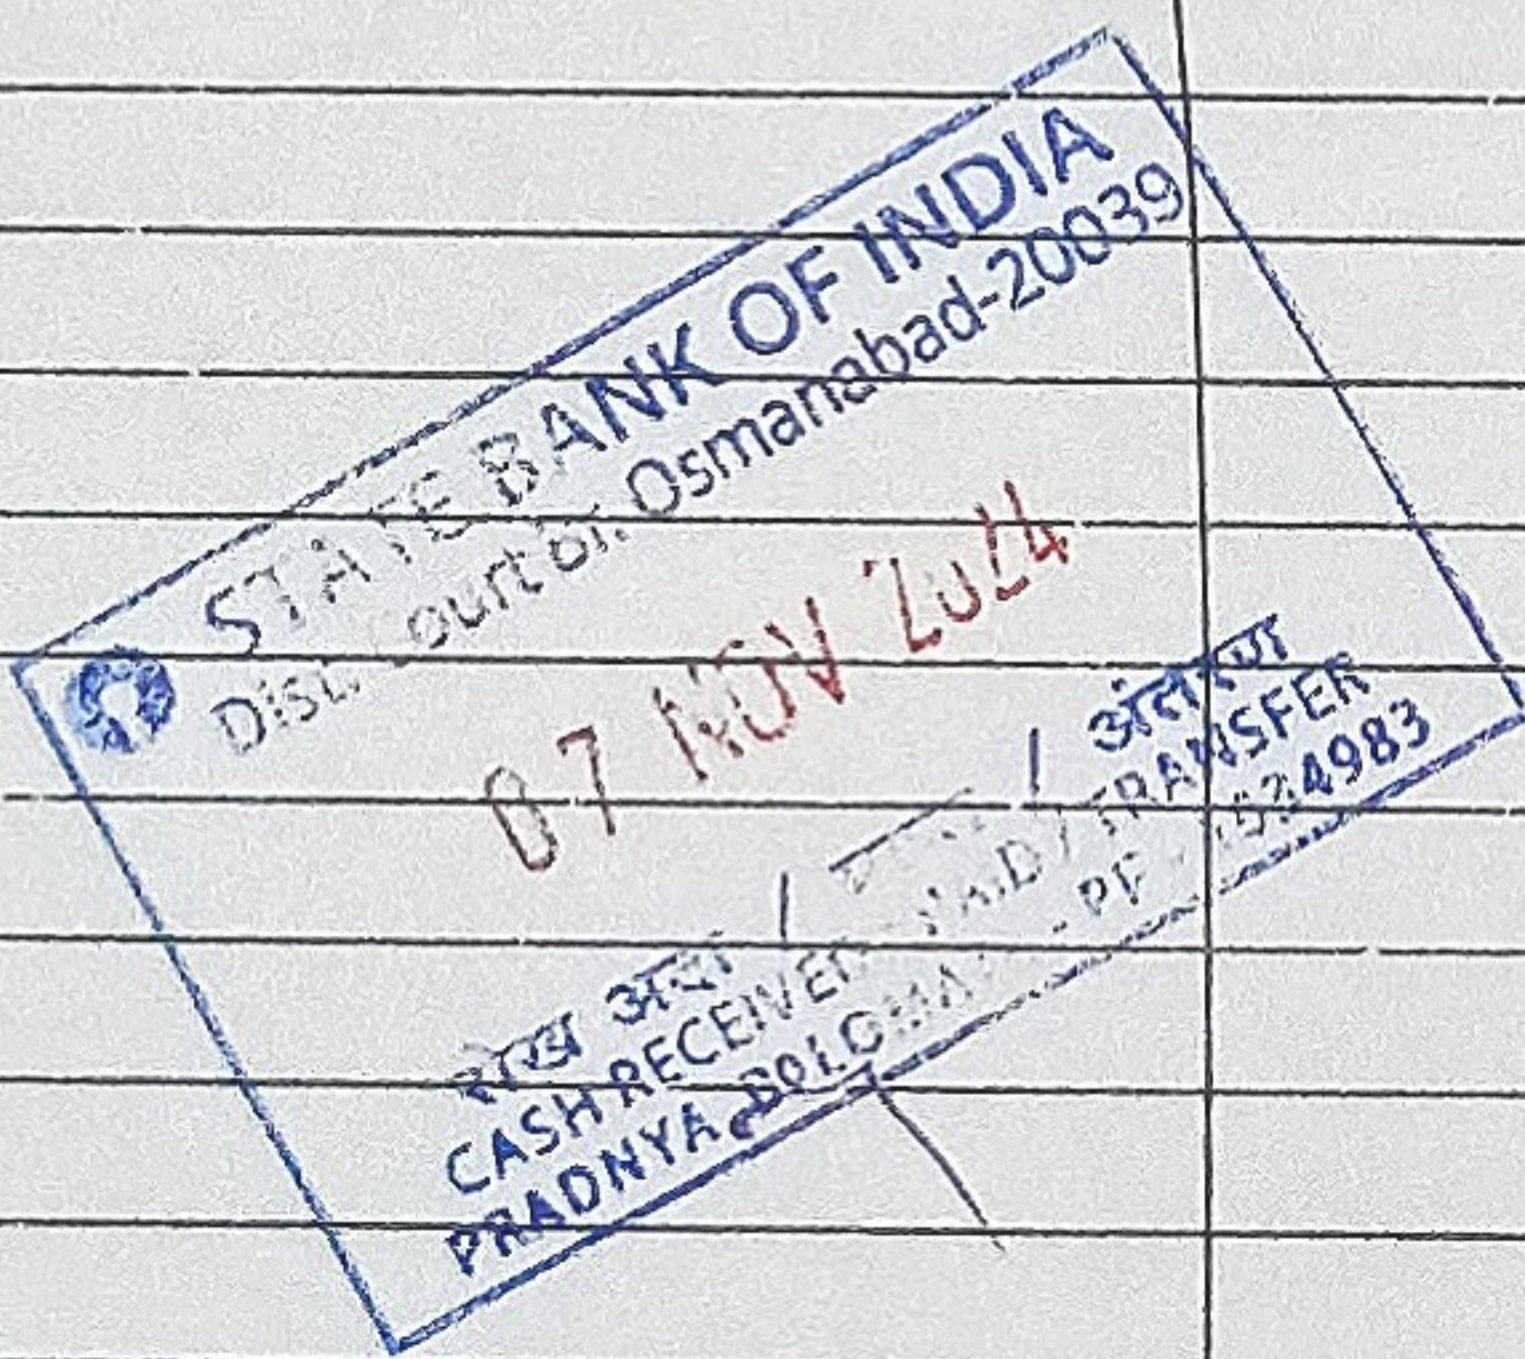 STATE BANK OF INDIA
Court Br. Osmanabad-20039
07 NOV 2024
रोख अदा / / अंतरण
CASH RECEIVED / PAID / TRANSFER
PRADNYA PF